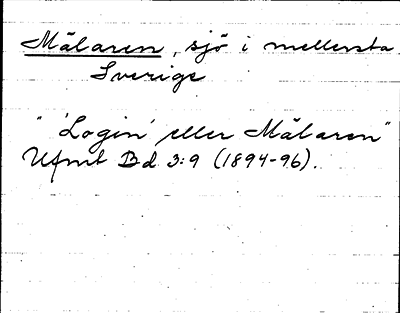 Mälaren, sjö i mellersta
Sverige
"'Login' eller Mälaren"
Ufmt Bd 3:9 (1894-96).